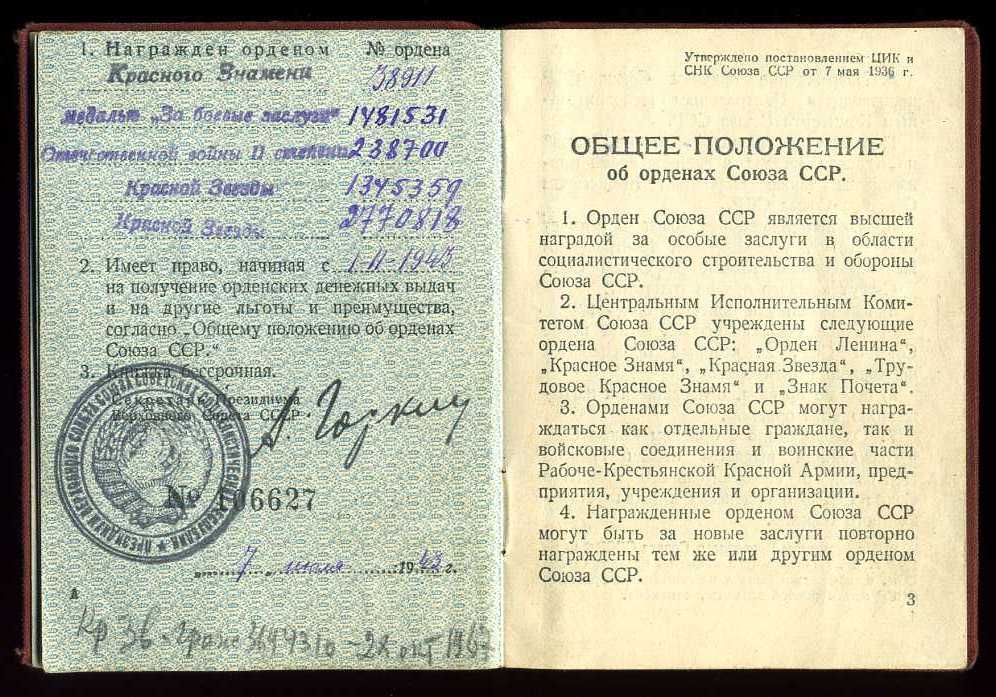 1. Награжден орденом № ордена
Красного Знамени 38911
медалью „За боевые заслуги“ 1481531
Отечественной войны II степени 238700
Красной Звезды 1345359
Красной Звезды 2770818
2. Имеет право, начиная с 1-II-1943
на получение орденских денежных выдач
и на другие льготы и преимущества,
согласно „Общему положению об орденах
Союза ССР.“
3. Книжка бессрочная.
Секретарь Президиума
Верховного Совета СССР
А. Горкин
№ 106627
„ 7 „ июля 1943 г.
А
Кр Зв 22 окт 1967
Утверждено постановлением ЦИК и
СНК Союза ССР от 7 мая 1936 г.
ОБЩЕЕ ПОЛОЖЕНИЕ
об орденах Союза ССР.
1. Орден Союза ССР является высшей
наградой за особые заслуги в области
социалистического строительства и обороны
Союза ССР.
2. Центральным Исполнительным Коми-
тетом Союза ССР учреждены следующие
ордена Союза ССР: „Орден Ленина“,
„Красное Знамя“, „Красная Звезда“, „Тру-
довое Красное Знамя“ и „Знак Почета“.
3. Орденами Союза ССР могут награ-
ждаться как отдельные граждане, так и
войсковые соединения и воинские части
Рабоче-Крестьянской Красной Армии, пред-
приятия, учреждения и организации.
4. Награжденные орденом Союза ССР
могут быть за новые заслуги повторно
награждены тем же или другим орденом
Союза ССР.
3